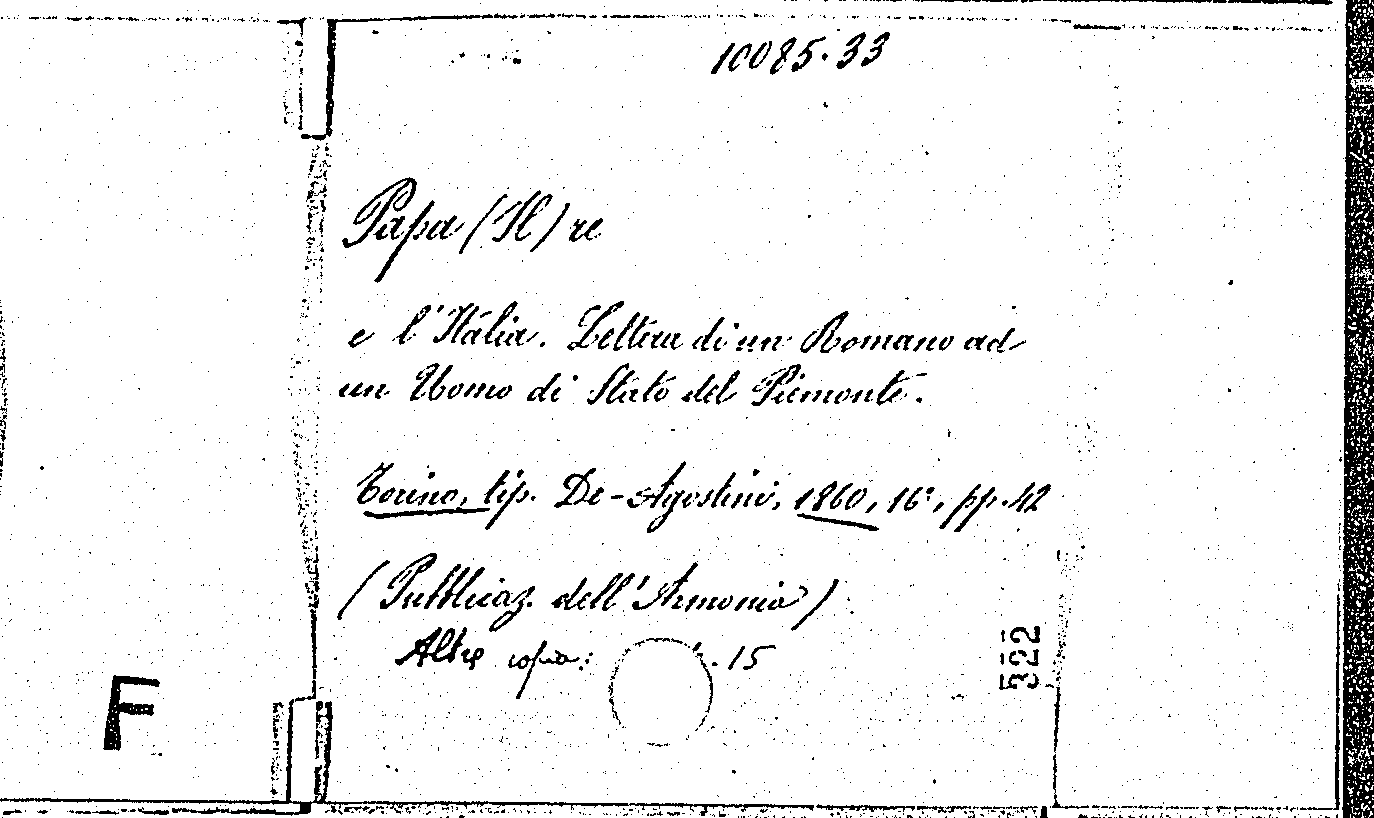 10085.33
Papa (Il) re
e l'Italia. Lettera di un Romano ad
un Uomo di Stato del Piemonte.
Torino, tip. De-Agostini, 1860, 16°, pp. 42
(Pubblicaz. dell'Armonia)
Altra copia: .15
322
F